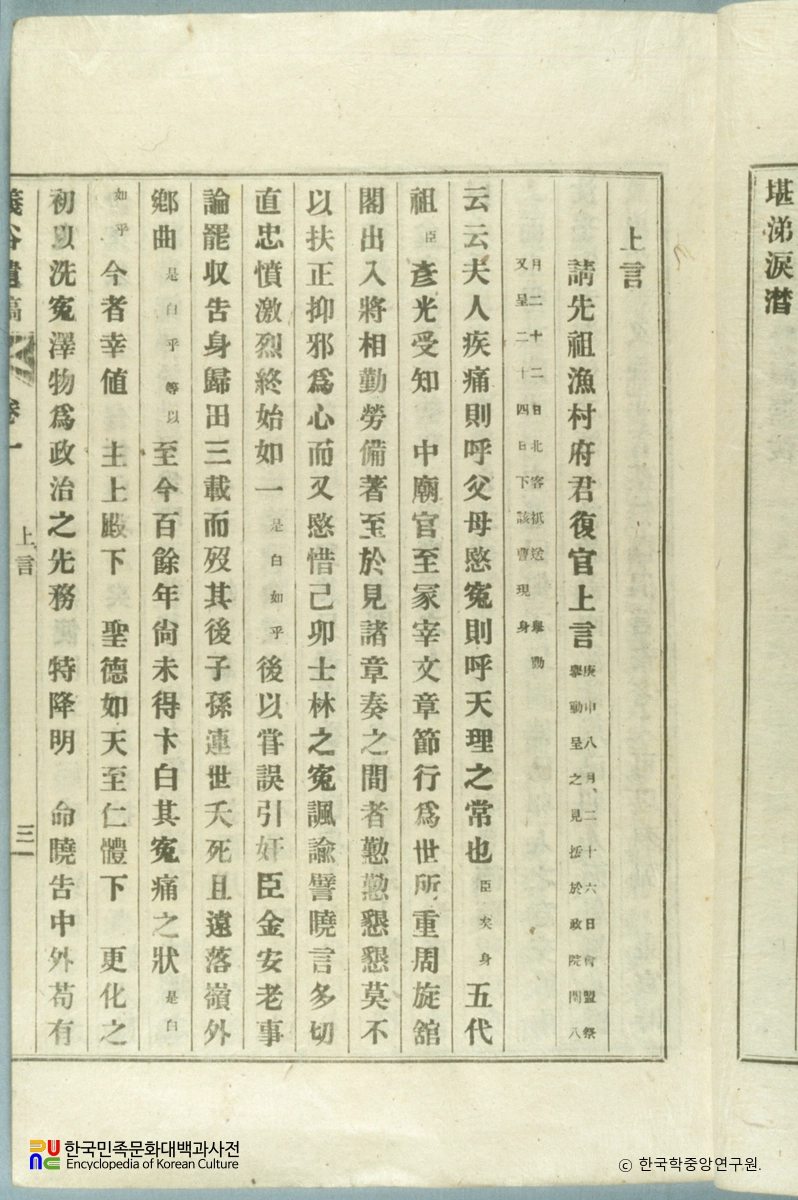 堪涕淚潛
上言
請先祖漁村府君復官上言 庚申八月二十六日會盟祭
擧動呈之見拓於政院閏八
月二十二日北客抵送擧動
又呈二十四日下該曹現身
云云夫人疾痛則呼父母愍冤則呼天理之常也臣矣身五代
祖臣彥光受知 中廟官至冢宰文章節行爲世所重周旋舘
閣出入將相勤勞備著至於見諸章奏之間者懃懃懇懇莫不
以扶正抑邪爲心而又愍惜己卯士林之冤諷諭譬曉言多切
直忠憤激烈終始如一是白如乎後以甞誤引奸臣金安老事
論罷収告身歸田三載而歿其後子孫連世夭死且遠落嶺外
鄉曲是白乎等以至今百餘年尙未得卞白其冤痛之狀是白
如乎今者幸値 主上殿下 聖德如天至仁體下 更化之
初以洗冤澤物爲政治之先務 特降明 命曉告中外苟有
遺稿 卷一 上言 三
한국민족문화대백과사전
Encyclopedia of Korean Culture
ⓒ 한국학중앙연구원.